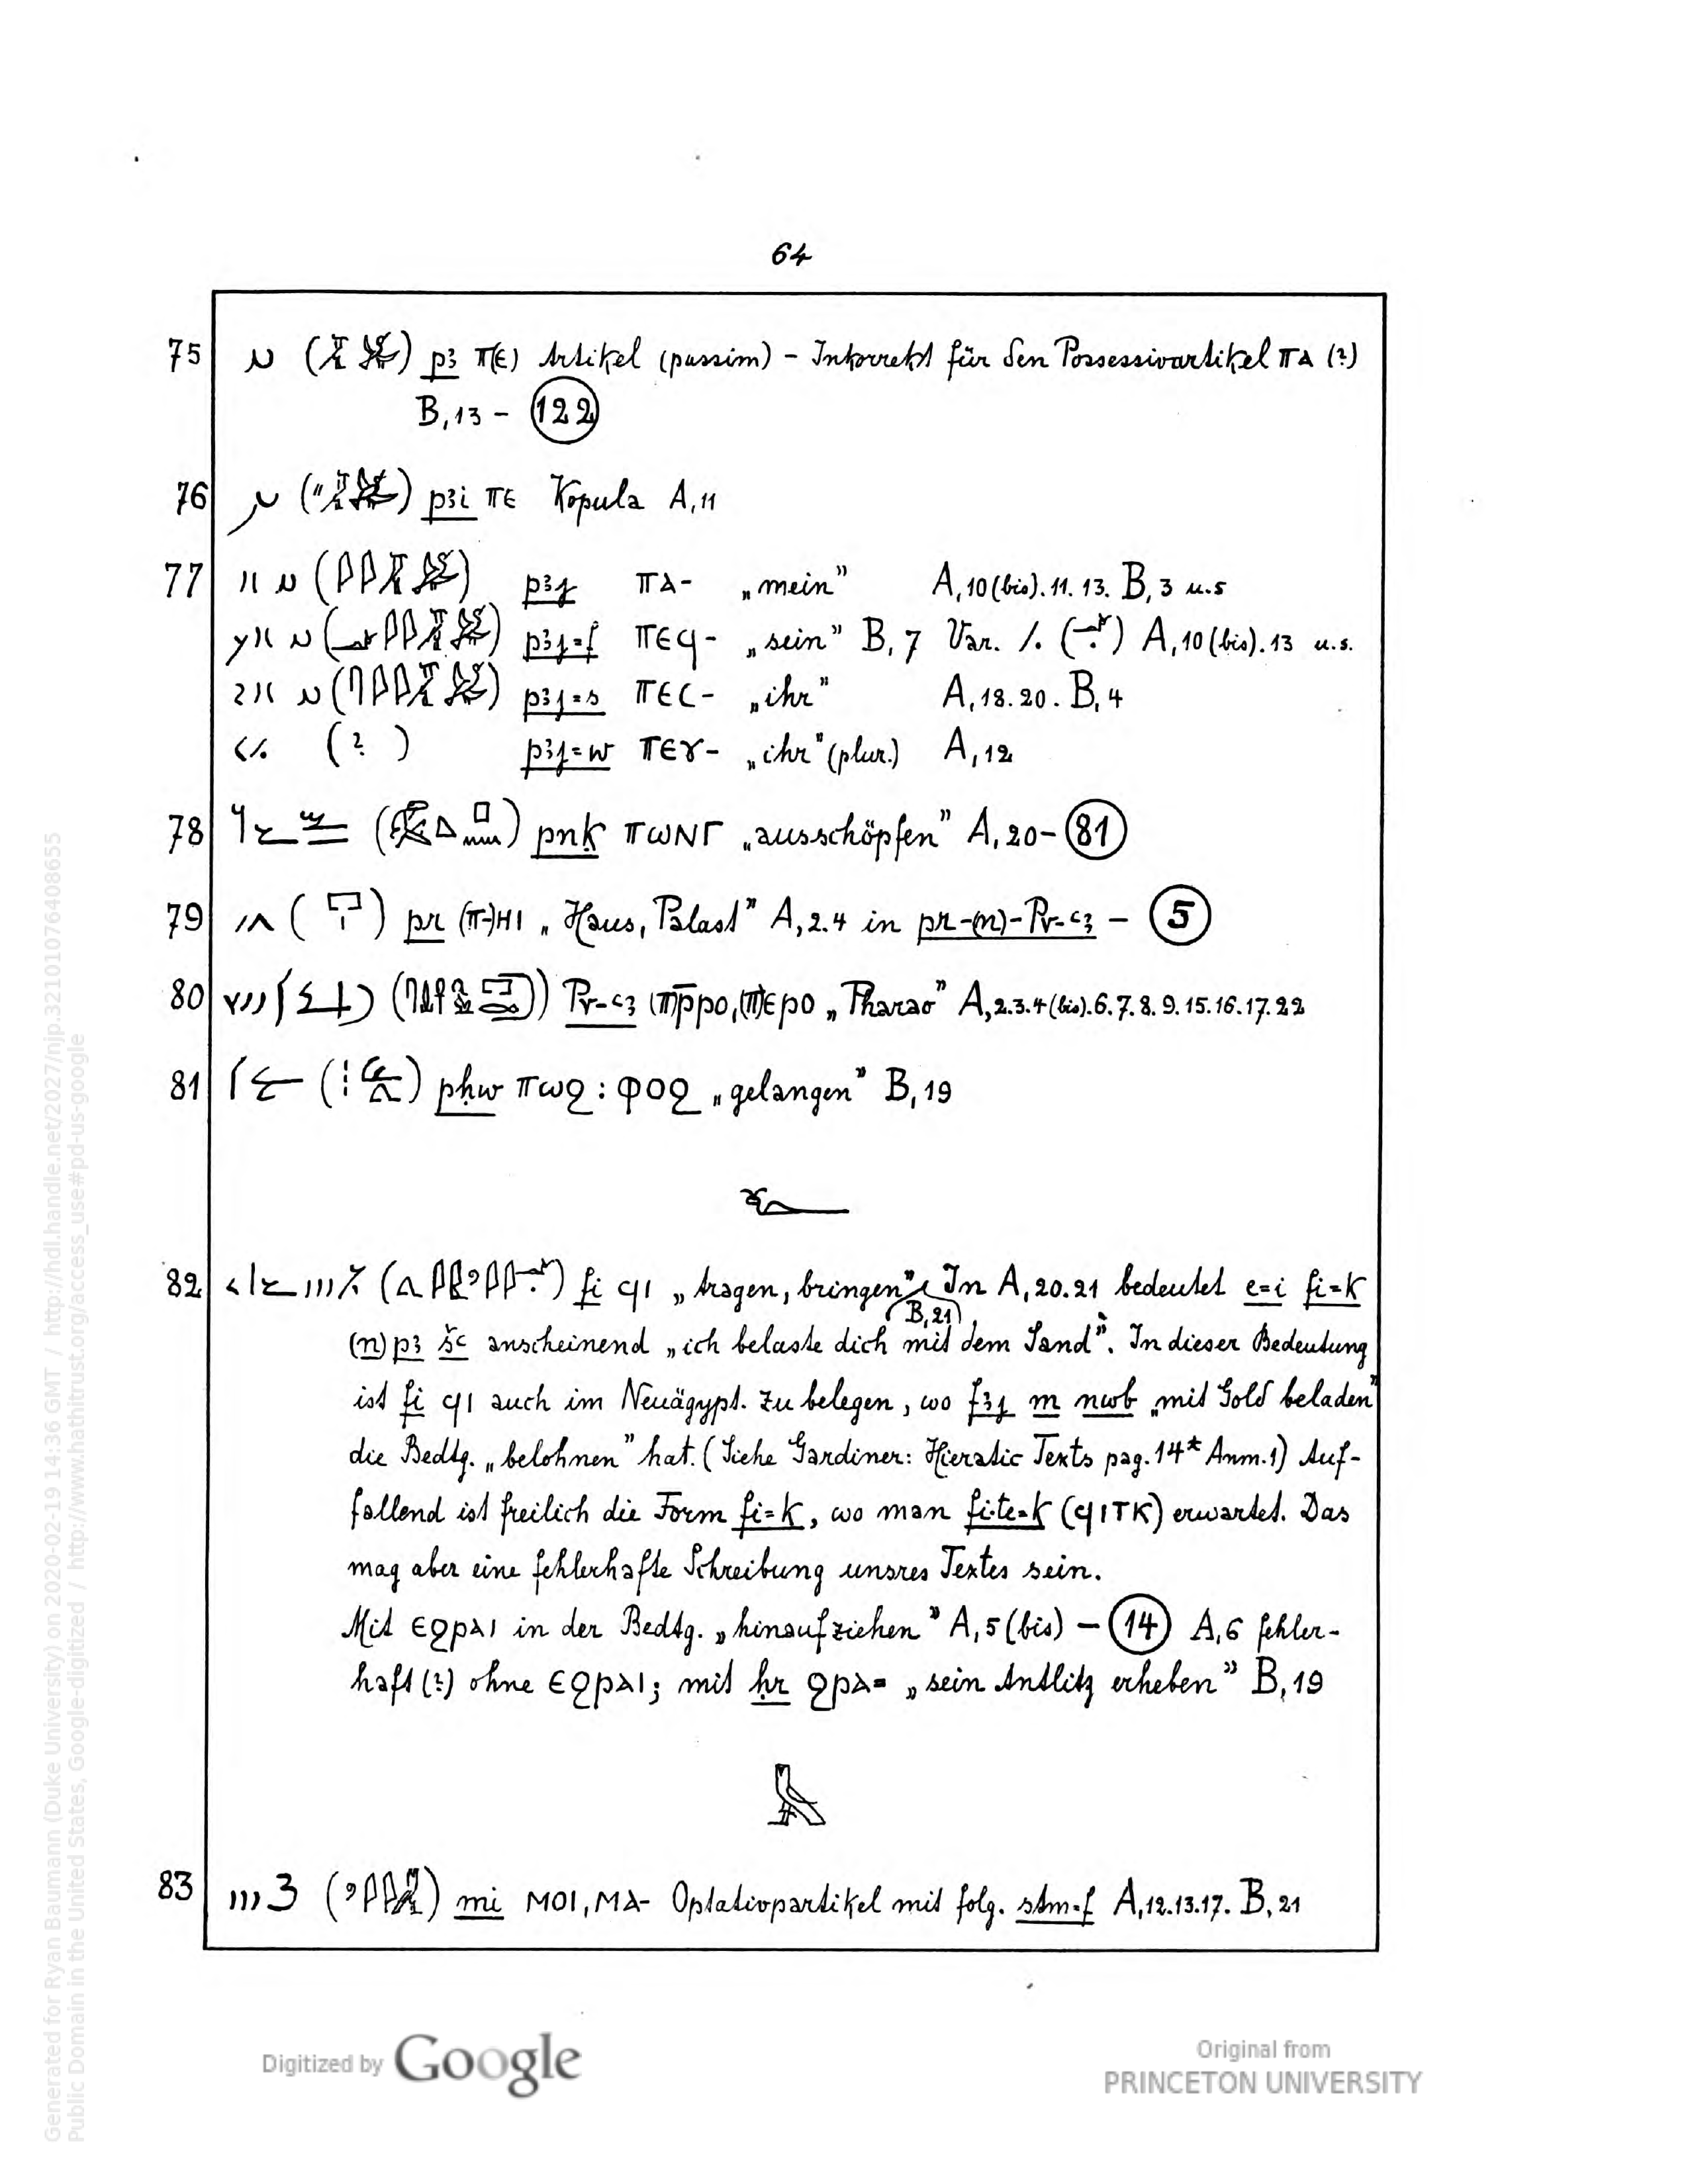 64
75 (𓅮𓄿) p3 ⲡ(ⲉ) Artikel (passim) – Inkorrekt für den Possessivartikel ⲡⲁ (?)
B, 13 – 122
76 p3i ⲡⲉ Kopula A, 11
77 p3j ⲡⲁ- „mein” A, 10 (bis). 11. 13. B, 3 u.s
p3j=f ⲡⲉϥ- „sein” B, 7 Var. A, 10 (bis). 13 u.s.
p3j=s ⲡⲉⲥ- „ihr” A, 18. 20. B, 4
( ? ) p3j=w ⲡⲉⲩ- „ihr” (plur.) A, 12
78 pnḳ ⲡⲱⲛⲅ „ausschöpfen” A, 20 – 81
79 (𓉐𓏤) pr (ⲡ-)ⲏⲓ „Haus, Palast” A, 2. 4 in pr-(n)-Pr-ꜥ3 – 5
80 Pr-ꜥ3 (ⲡ)ⲣ̄ⲣⲟ, (ⲡ)ⲉⲣⲟ „Pharao” A, 2. 3. 4 (bis). 6. 7. 8. 9. 15. 16. 17. 22
81 pḥw ⲡⲱϩ : ⲫⲟϩ „gelangen” B, 19
𓆑
82 fi ϥⲓ „tragen, bringen” B, 21 In A, 20. 21 bedeutet e=i fi=k
(n) p3 šꜥ anscheinend „ich belaste dich mit dem Sand”. In dieser Bedeutung
ist fi ϥⲓ auch im Neuägypt. zu belegen, wo f3j m nwb „mit Gold beladen”
die Bedtg. „belohnen” hat. (Siehe Gardiner: Hieratic Texts pag. 14* Anm. 1) Auf-
fallend ist freilich die Form fi=k, wo man fi.te=k (ϥⲓⲧⲕ) erwartet. Das
mag aber eine fehlerhafte Schreibung unsres Textes sein.
Mit ⲉϩⲣⲁⲓ in der Bedtg. „hinaufziehen” A, 5 (bis) – 14 A, 6 fehler-
haft (?) ohne ⲉϩⲣⲁⲓ; mit ḥr ϩⲣⲁ= „sein Antlitz erheben” B, 19
𓅓
83 mi ⲙⲟⲓ, ⲙⲁ- Optativpartikel mit folg. stm=f A, 12. 13. 17. B, 21
Digitized by Google
Original from
PRINCETON UNIVERSITY
Generated for Ryan Baumann (Duke University) on 2020-02-19 14:36 GMT / http://hdl.handle.net/2027/njp.32101076408655
Public Domain in the United States, Google-digitized / http://www.hathitrust.org/access_use#pd-us-google